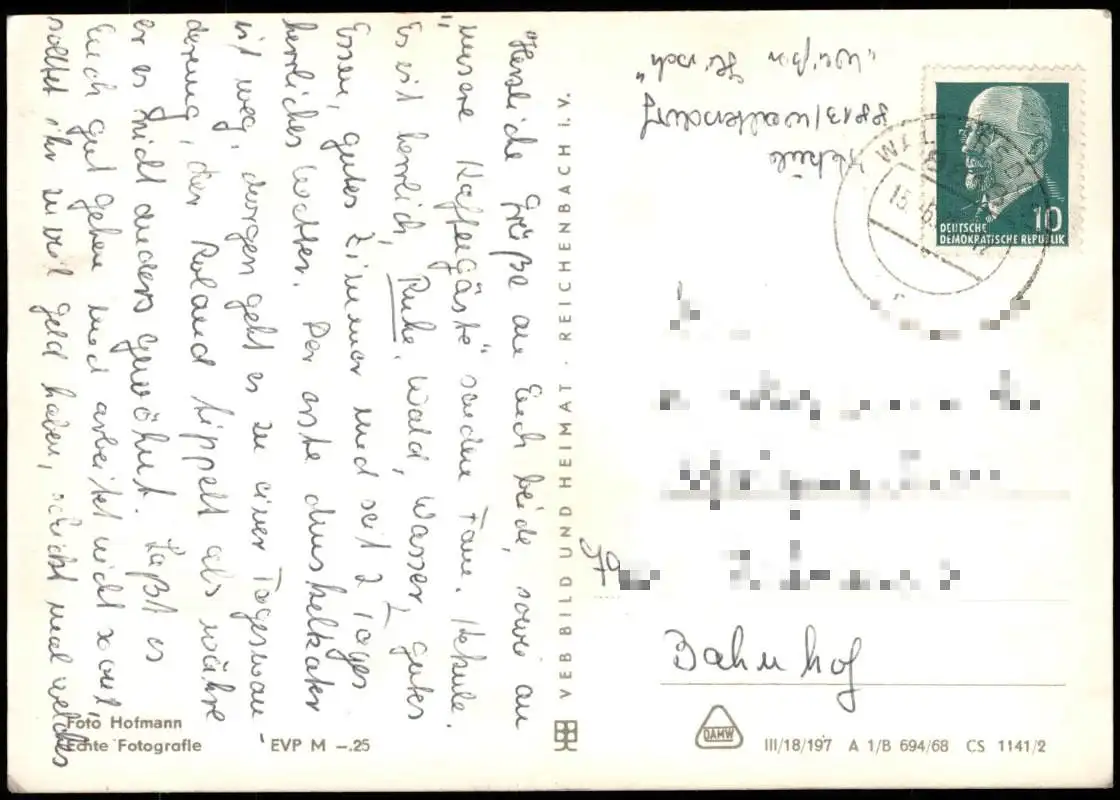 Herzliche Grüße an Euch beide, sowie an
unsere „Kaffeegäste" senden Fam. Kekule.
Es ist herrlich, Ruhe, Wald, Wasser, gutes
Essen, gutes Zimmer und seit 2 Tagen
herrliches Wetter. Der erste Muskelkater
ist weg, morgen geht es zu einer Tageswan-
derung, der Roland tippelt als währe
er es nicht anders gewöhnt. Laßt es
Euch gut gehen und arbeitet nicht soviel,
solltet ihr zu viel Geld haben, schickt mal welches
Foto Hofmann
Echte Fotografie
EVP M –.25
VEB BILD UND HEIMAT · REICHENBACH I. V.
Kekule
8813/Waltersdorf
„Weißer Hirsch"
DEUTSCHE
DEMOKRATISCHE REPUBLIK
10
79
Bahnhof
DAMW
III/18/197 A 1/B 694/68 CS 1141/2